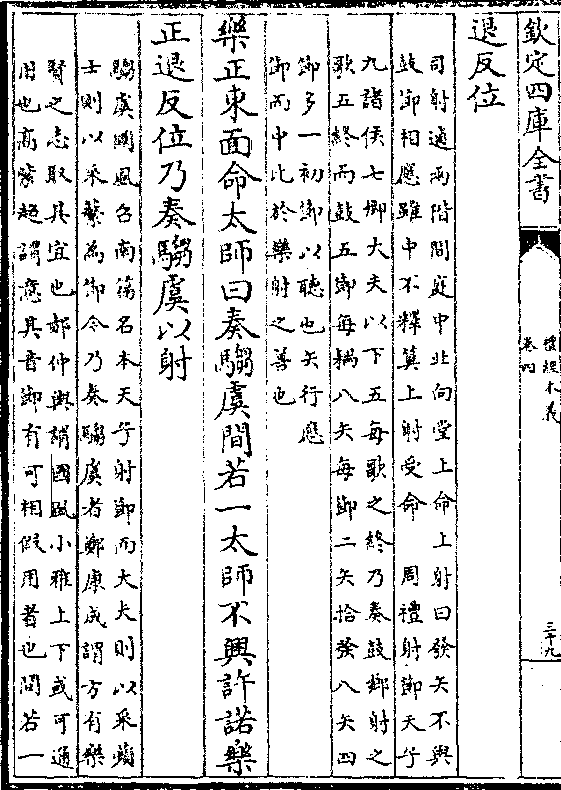 欽定四庫全書
禮經本義
卷四
三十九
退反位
司射適兩階間庭中北向堂上命上射曰發矢不與
鼓節相應雖中不釋算上射受命 周禮射節天子
九諸侯七卿大夫以下五每歌之終乃奏鼓鄉射之
歌五終而鼓五節每耦八矢每節二矢拾發八矢四
節多一初節以聽也矢行應
節而中比於樂射之善也
樂正東面命太師曰奏騶虞間若一太師不興許諾樂
正退反位乃奏騶虞以射
騶虞國風召南篇名本天子射節而大夫則以采蘋
士則以采蘩為節今乃奏騶虞者鄭康成謂方有樂
賢之志取其宜也郝仲輿謂國風小雅上下或可通
用也高紫超謂意其音節有可相假用者也間若一